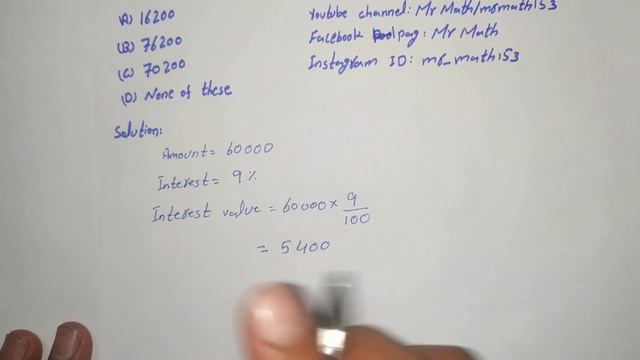 (A) 16200
(B) 76200
(C) 70200
(D) None of these
Youtube channel: Mr Math/m6math153
Facebook pag: Mr Math
Instagram ID: m6_math153
Solution:
Amount = 60000
Interest = 9 %
Interest value = 60000 × 9/100
= 5400